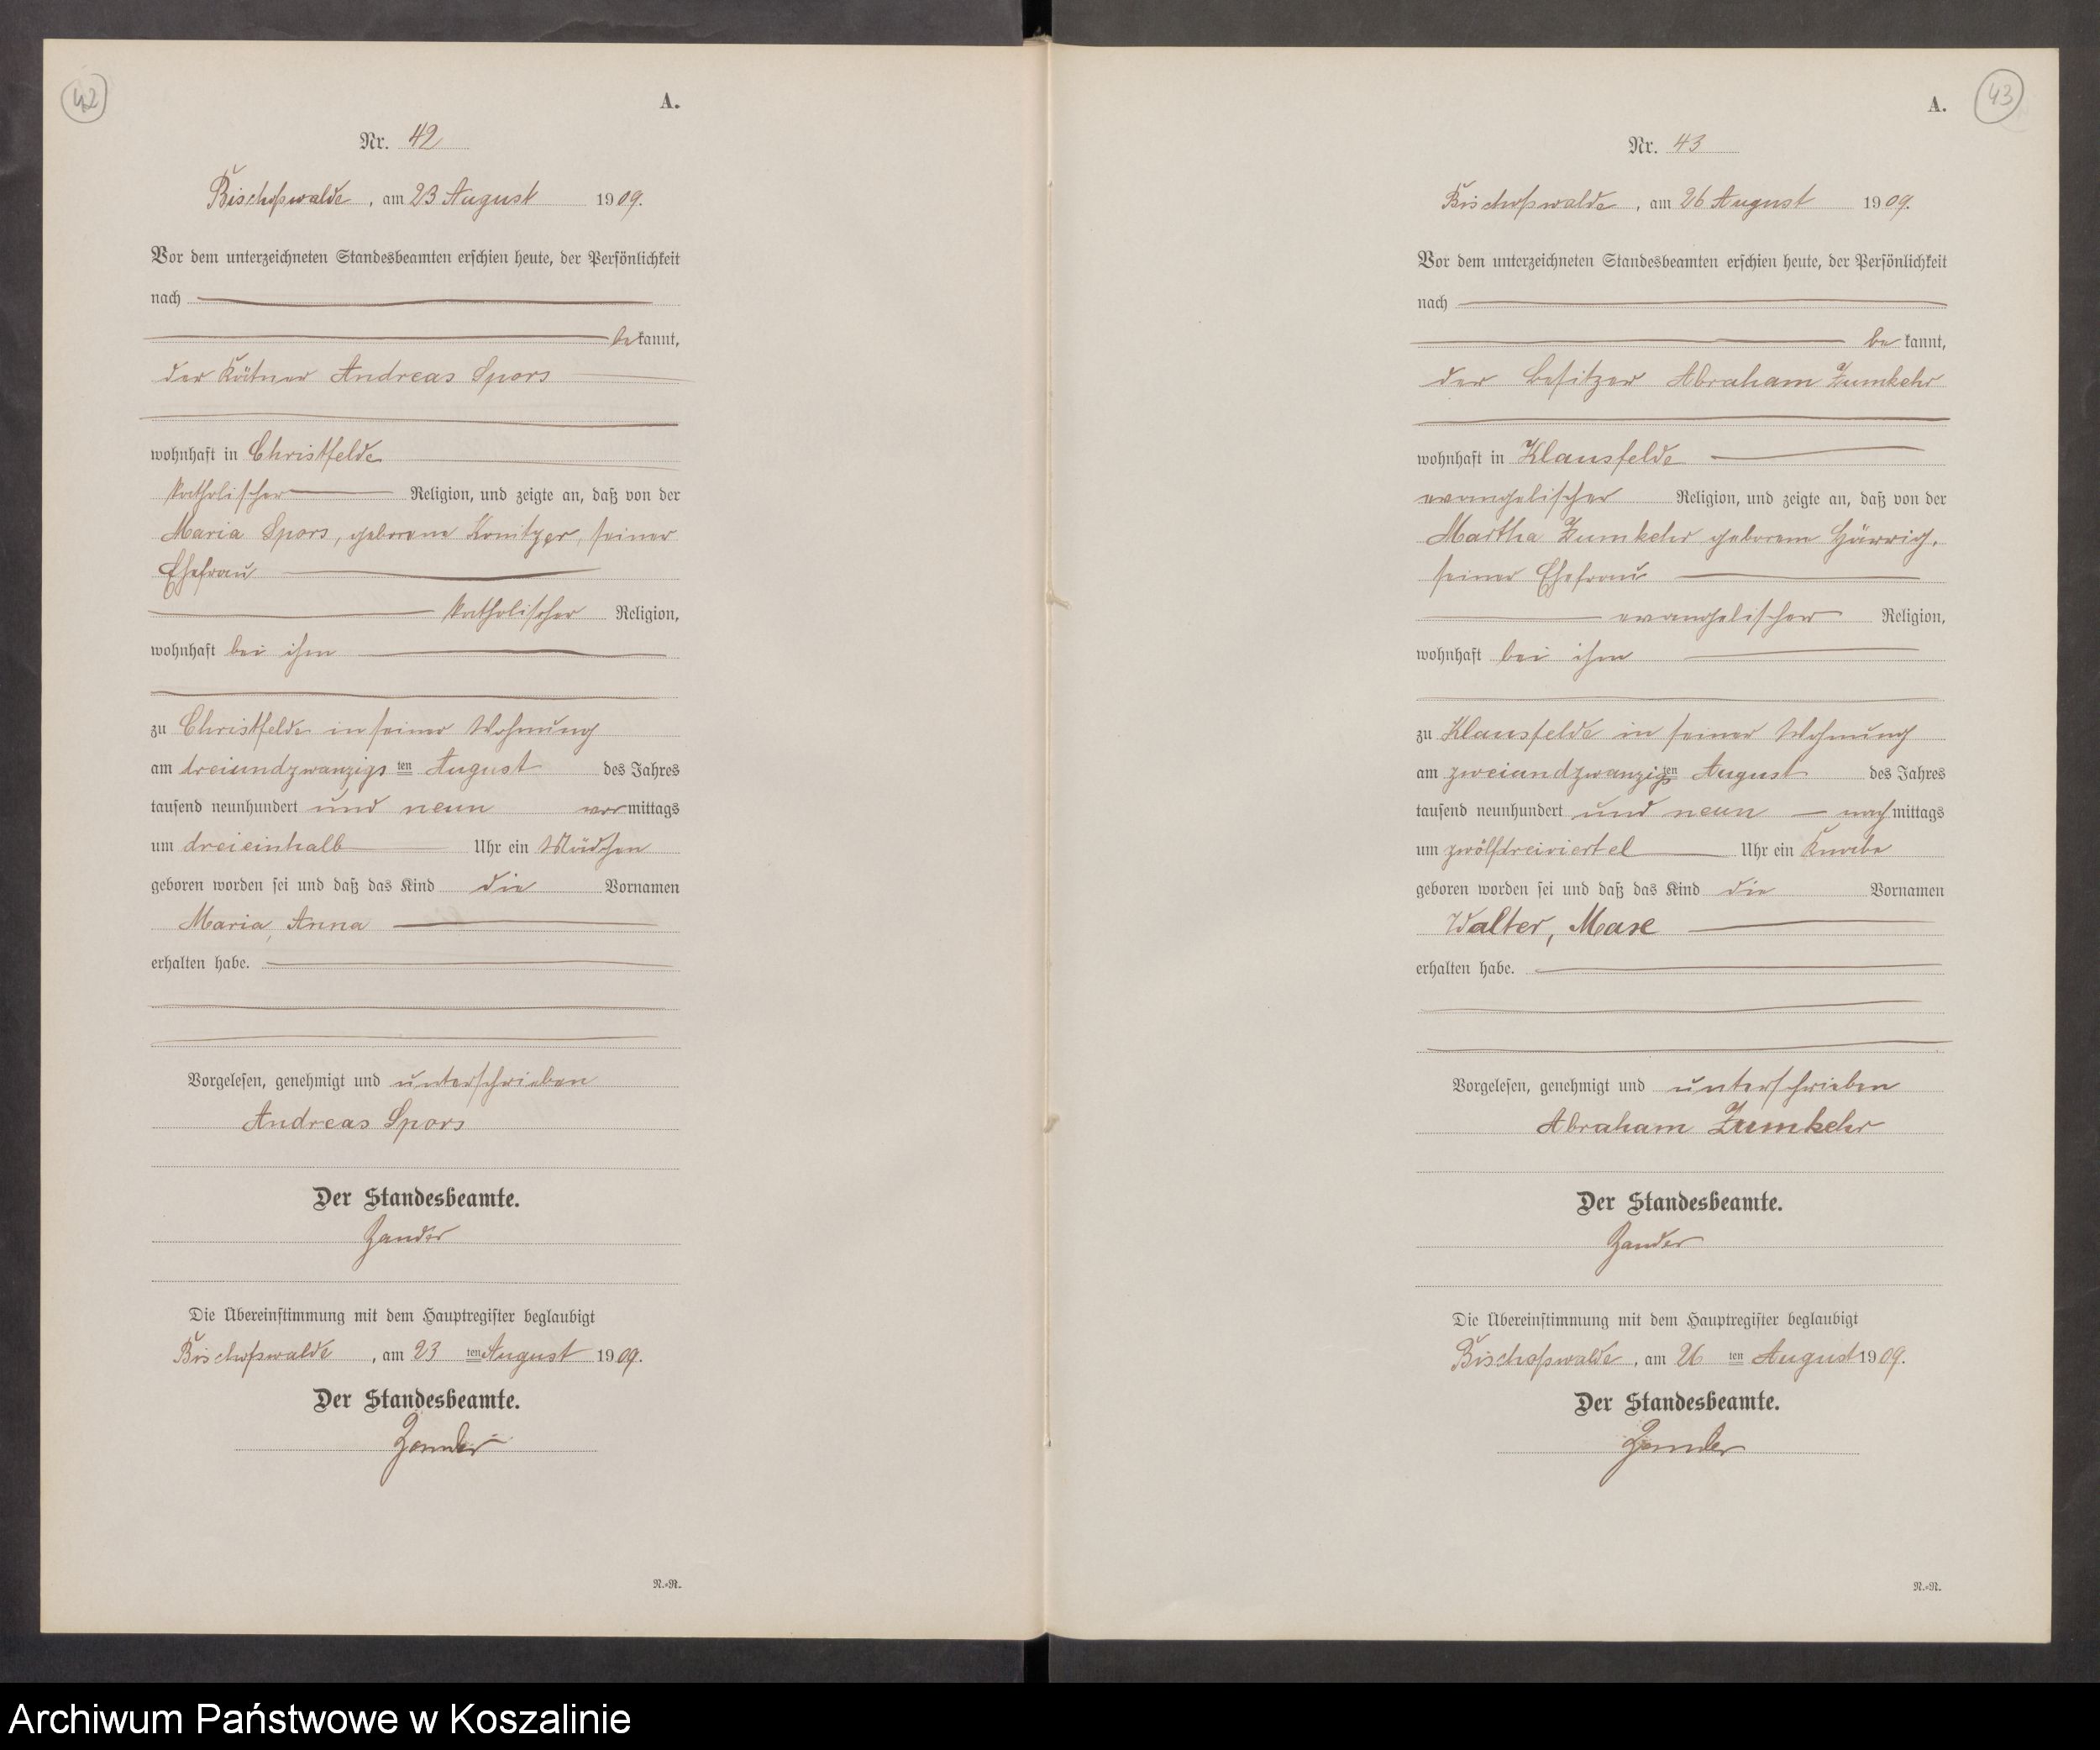 42
A.
Nr. 42
Bischofswalde, am 23 August 1909.
Vor dem unterzeichneten Standesbeamten erschien heute, der Persönlichkeit
nach
bekannt,
der Kätner Andreas Spors
wohnhaft in Christfelde
katholischer Religion, und zeigte an, daß von der
Maria Spors, geborene Konitzer, seiner
Ehefrau
katholischer Religion,
wohnhaft bei ihm
zu Christfelde in seiner Wohnung
am dreiundzwanzigsten August des Jahres
tausend neunhundert und neun vormittags
um dreieinhalb Uhr ein Mädchen
geboren worden sei und daß das Kind die Vornamen
Maria, Anna
erhalten habe.
Vorgelesen, genehmigt und unterschrieben
Andreas Spors
Der Standesbeamte.
Zander
Die Übereinstimmung mit dem Hauptregister beglaubigt
Bischofswalde, am 23 ten August 1909.
Der Standesbeamte.
Zander
N.-N.
43
A.
Nr. 43
Bischofswalde, am 26 August 1909.
Vor dem unterzeichneten Standesbeamten erschien heute, der Persönlichkeit
nach
bekannt,
der Besitzer Abraham Zumkehr
wohnhaft in Klausfelde
evangelischer Religion, und zeigte an, daß von der
Martha Zumkehr geborene
seiner Ehefrau
evangelischer Religion,
wohnhaft bei ihm
zu Klausfelde in seiner Wohnung
am zweiundzwanzigsten August des Jahres
tausend neunhundert und neun nachmittags
um zwölfdreiviertel Uhr ein Knabe
geboren worden sei und daß das Kind die Vornamen
Walter, Maxe
erhalten habe.
Vorgelesen, genehmigt und unterschrieben
Abraham Zumkehr
Der Standesbeamte.
Zander
Die Übereinstimmung mit dem Hauptregister beglaubigt
Bischofswalde, am 26 ten August 1909.
Der Standesbeamte.
Zander
N.-N.
Archiwum Państwowe w Koszalinie